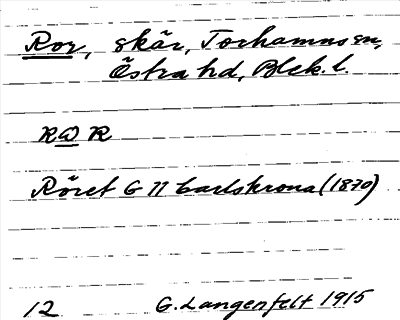 Ror, skär, Torhamns sn,
Östra hd, Blek. l.
RⱭR
Röret G 77 Carlskrona (1870)
12 G. Langenfelt 1915